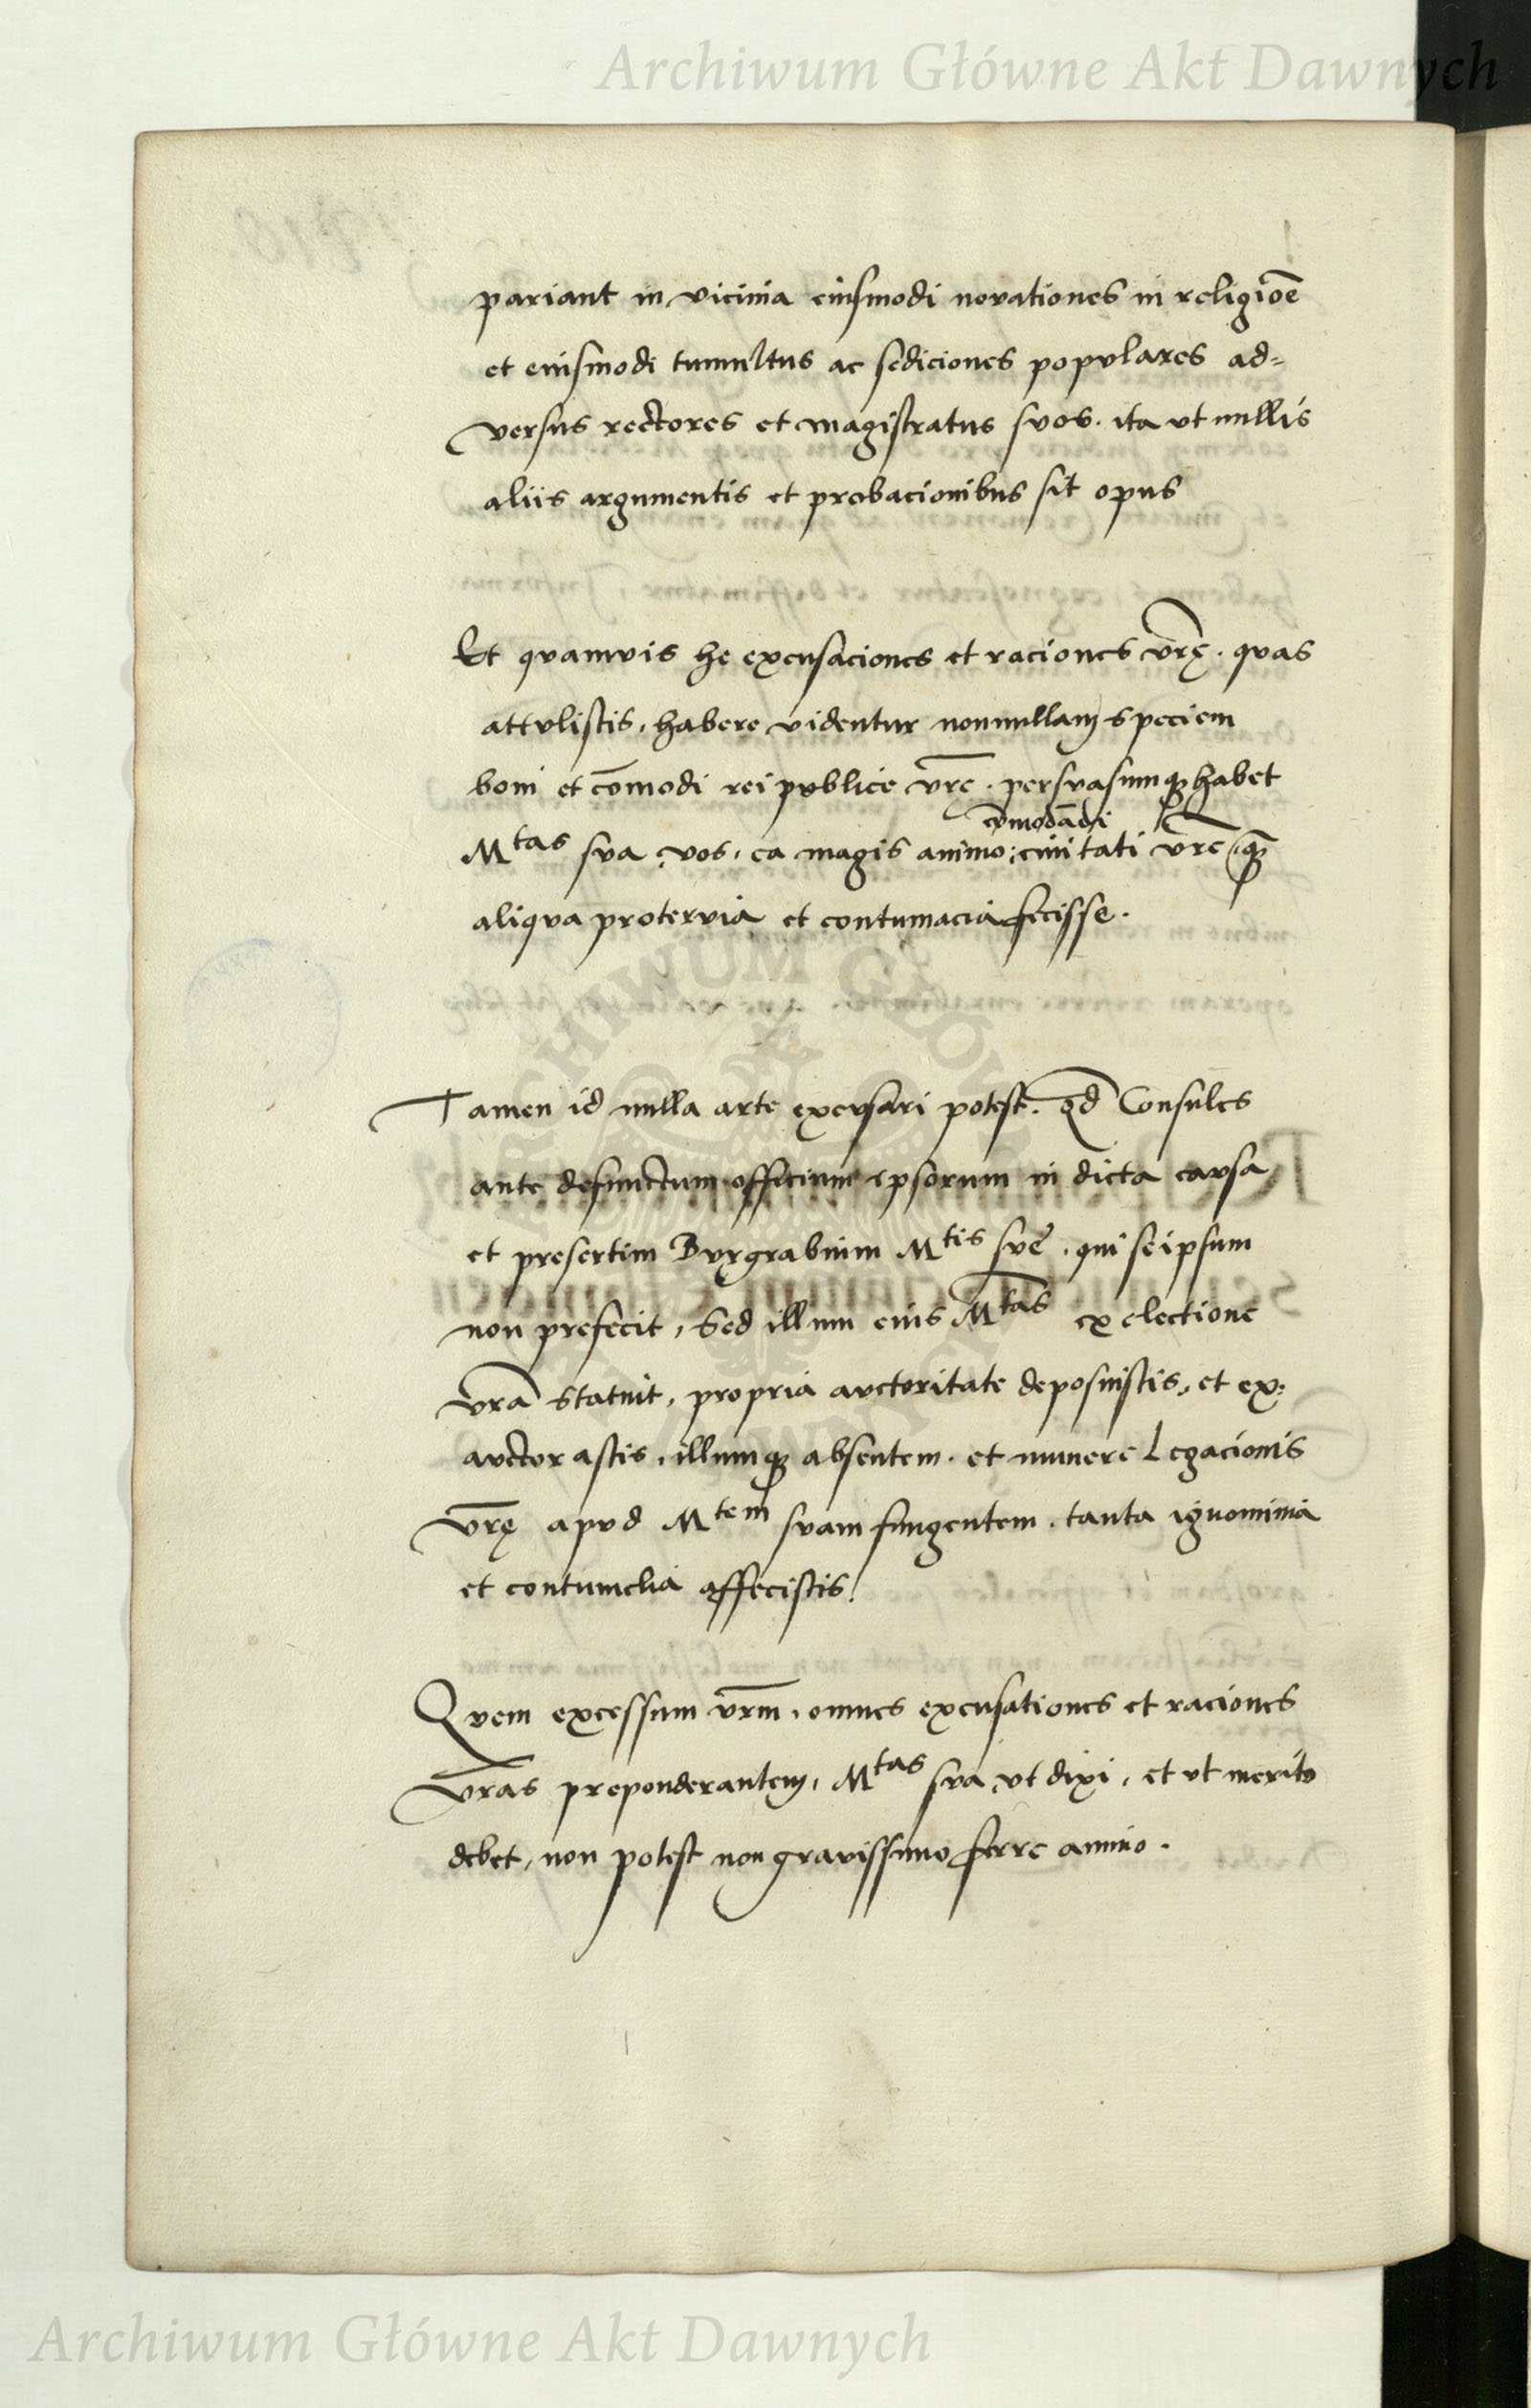 Archiwum Główne Akt Dawnych
pariant in vicinia eiusmodi novationes in religiōe
et eiusmodi tumultus ac sediciones populares ad=
versus rectores et magistratus suos. ita ut nullis
aliis argumentis et probacionibus sit opus
Et quamvis he excusaciones et raciones vr̄ę. quas
attulistis, habere videntur nonnullam speciem
boni et cōmodi rei publice vr̄ę. persuasumq; habet
cōmodādi
Mtas sua vos, ea magis animo civitati vr̄e q̄
aliqua protervia et contumacia fecisse.
Tamen id nulla arte excusari potest. qd̄ Consules
ante defunctum officium ipsorum in dicta causa
et presertim Burgrabium Mtis suę. qui seipsum
non prefecit, Sed illum eius Mtas ex electione
vr̄a statuit, propria auctoritate deposuistis, et ex=
auctorastis, illumq; absentem. et munere Legacionis
vr̄ę apud Mtem suam fungentem. tanta ignominia
et contumelia affecistis.
Quem excessum vr̄m, omnes excusationes et raciones
vr̄as preponderantem, Mtas sua, ut dixi, et ut merito
debet, non potest non gravissimo ferre animo.
Archiwum Główne Akt Dawnych